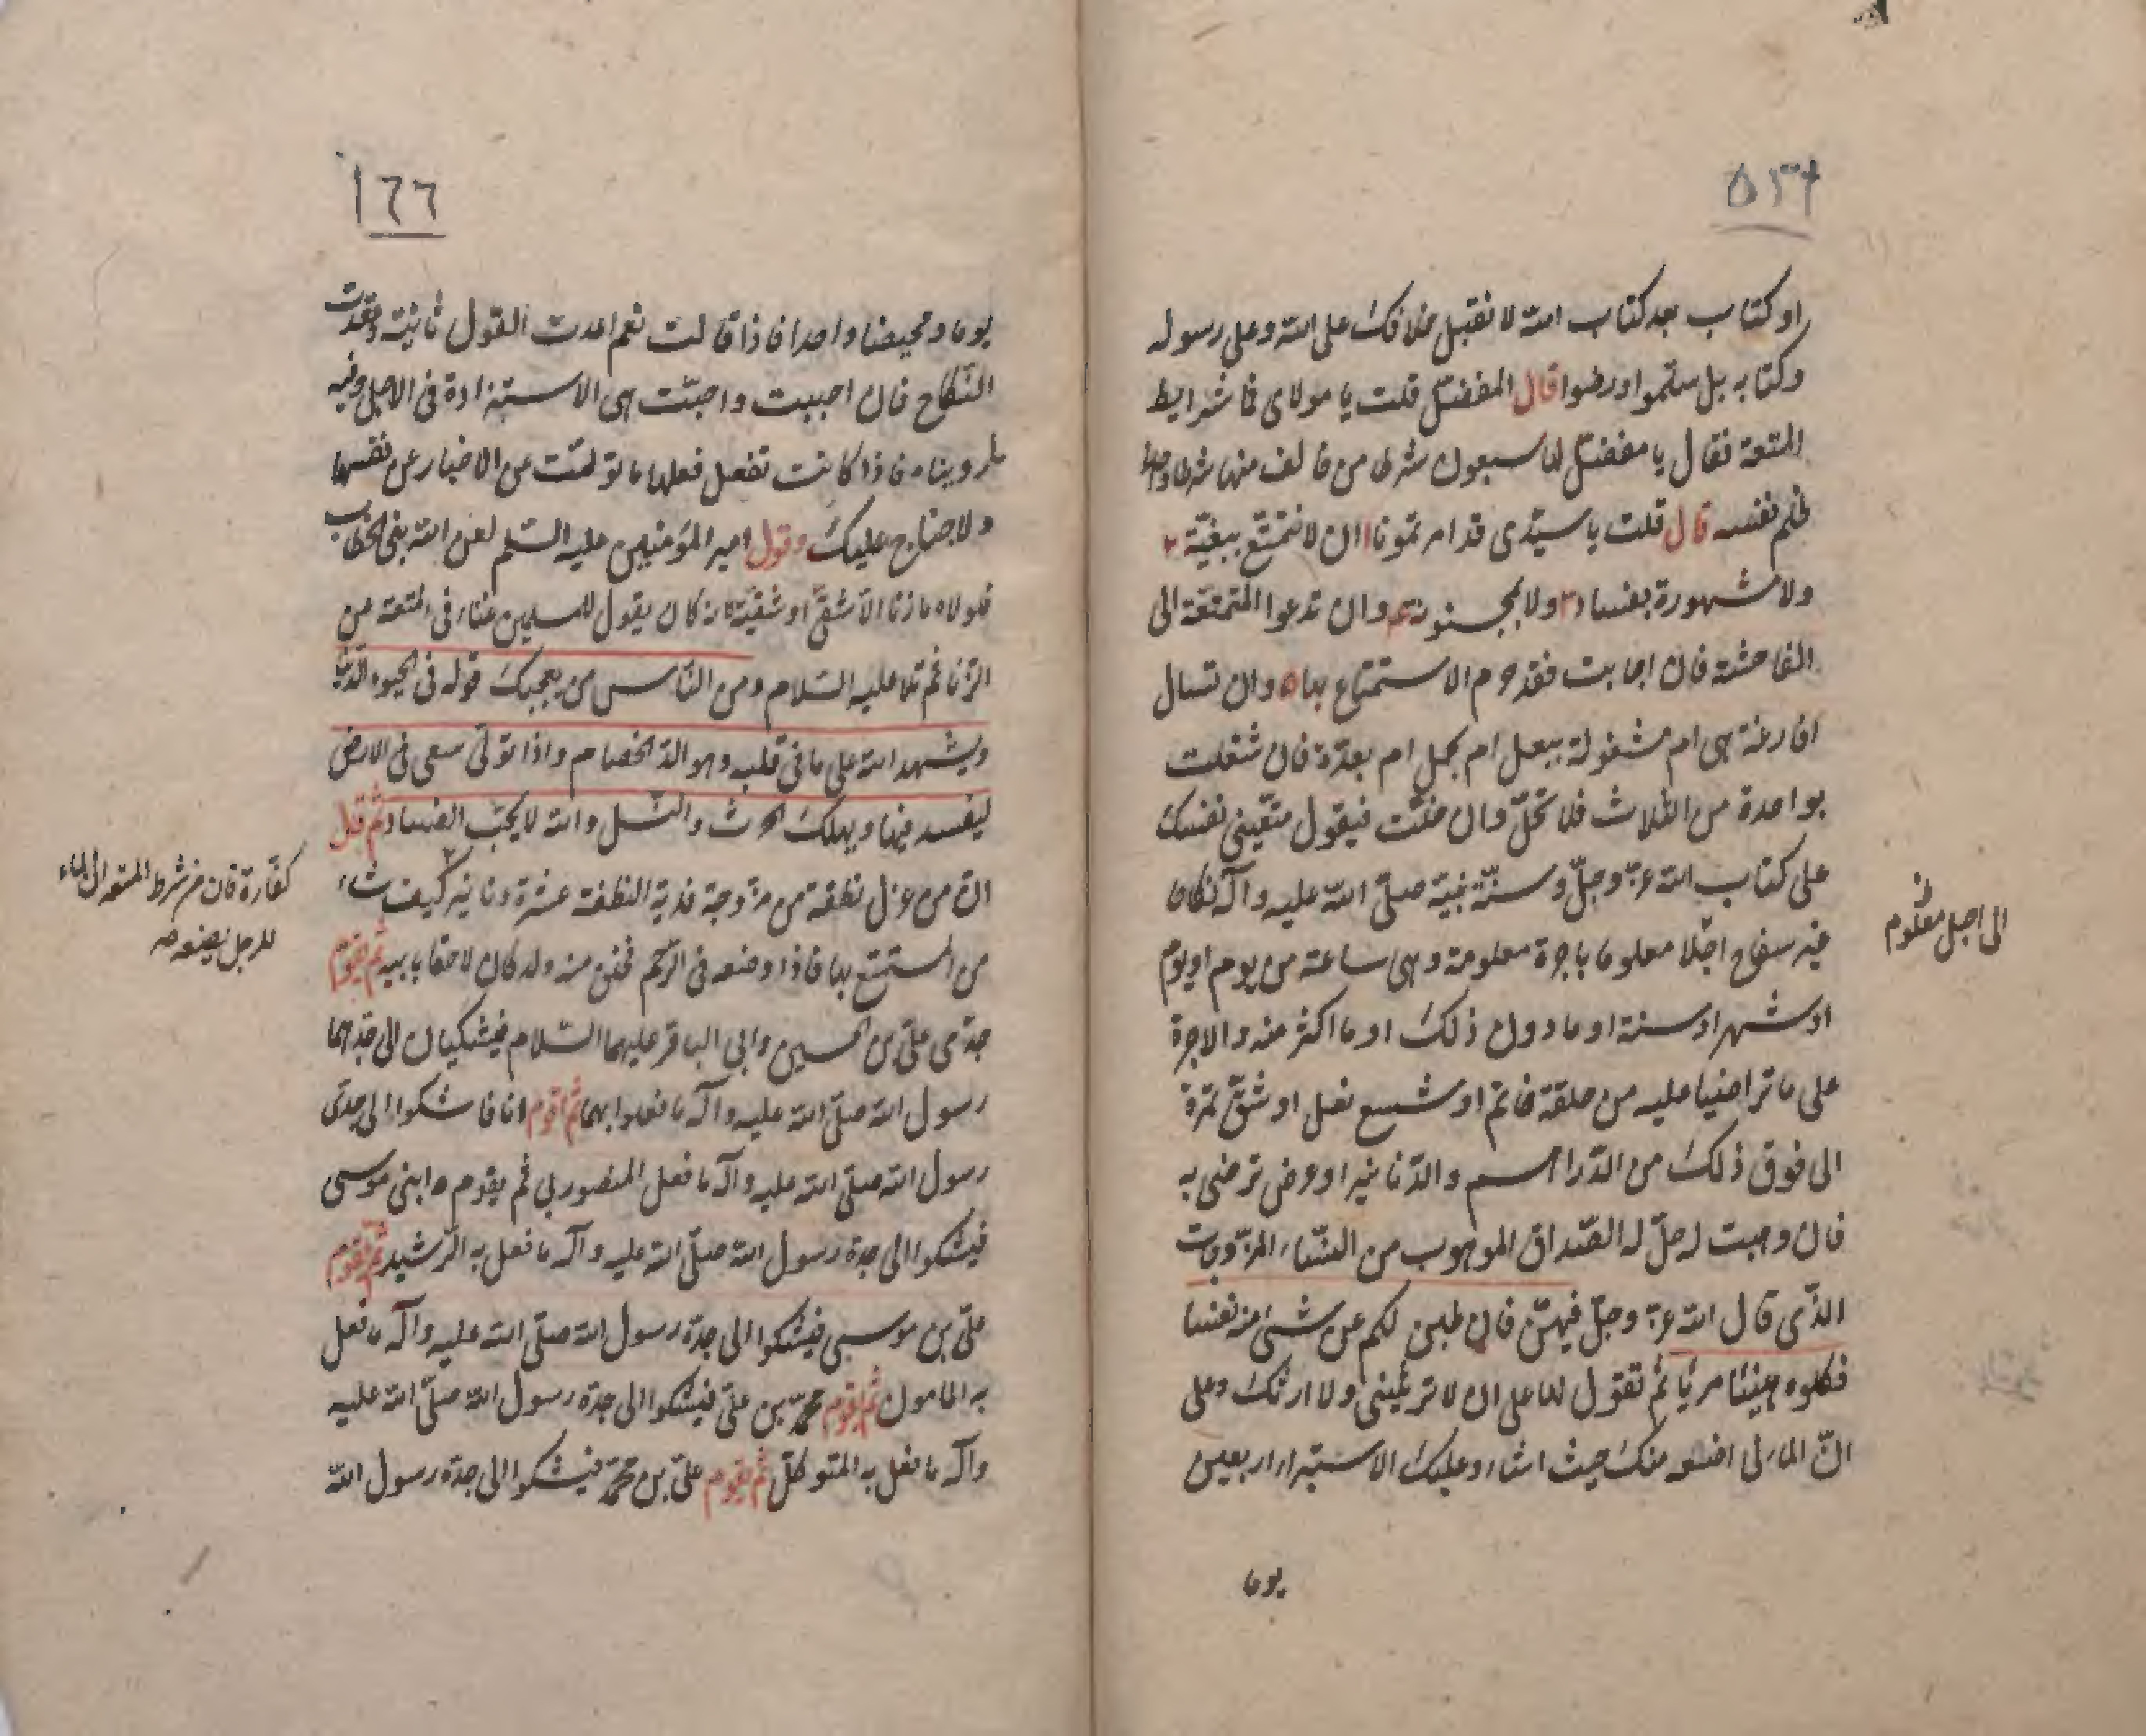 ٥٣٢
او كتاب بعد كتاب الله لا نقبل خلافك على الله وعلى رسوله
وكتابه بل سلموا ورضوا قال المفضل قلت يا مولاى فما شرايط
المتعة فقال يا مفضل لها سبعون شرطا من خالف منها شرطا واحدا
ظلم نفسه قال قلت يا سيّدى قد امرتمونا ان لا نتمتع ببغيّة ٢
ولا مشهورة بفساد ٣ ولا بمجنونة ٤ وان تدعوا المتمتعة الى
الفاحشة فان اجابت فقد حرم الاستمتاع بها ٥ وان تسال
افارغة هى ام مشغولة ببعل ام بحمل ام بعدّة فان شغلت
بواحدة من الثلاث فلا تحلّ وان خلت فيقول متّعينى نفسك
على كتاب الله عز وجلّ وسنّة نبيّه صلّى الله عليه وآله نكاحا
غير سفاح اجلا معلوما باجرة معلومة وهى ساعة من يوم او يوم
الى اجل معلوم
او شهر او سنة او ما دون ذلك او ما اكثر منه والاجرة
على ما تراضيا عليه من حلقة خاتم او شسع نعل او شقّ تمرة
الى فوق ذلك من الدّراهم والدّنانير او عرض ترضى به
فان وهبت له حلّ له الصّداق الموهوب من النّساء المزوّجات
الذّى قال الله عز وجلّ فيهنّ فان طبن لكم عن شىء منه نفسا
فكلوه هنيئا مريّا ثم تقول لها على ان لا ترثينى ولا ارثك وعلى
انّ الماء لى اضعه منك حيث اشاء وعليك الاستبراء اربعين
يوما
١٦٦
يوما ومحيضا واحدا فاذا قالت نعم اعدت القول ثانية وعقدت
النّكاح فان احببت واحبّت هى الاستزادة فى الاجل وفيه
ما رويناه فاذا كانت تفعل فعلها ما تولّت من الاخبار عن نفسها
ولا جناح عليك وقول امير المؤمنين عليه السّلم لعن الله بن الخطاب
فلولاه ما زنا الا شقىّ او شقيّة لانه كان يقول للمسلمين غناء فى المتعة عن
الزّنا ثم تلا عليه السّلام ومن النّاس من يعجبك قوله فى الحيوة الدّنيا
ويشهد الله على ما فى قلبه وهو الدّ الخصام واذا تولّى سعى فى الارض
ليفسد فيها ويهلك الحرث والنّسل والله لا يحبّ الفساد ثم قال
انّ من عزل نطفة من مزوجة فدية النطفة عشرة دنانير كيف شاء
كفّارة فان من شرط المتعة ان الماء
للرجل يضعه
من استمتع بها فاذا وضعه فى الرّحم فخلق منه ولد كان لاحقا بابيه ثم يقوم
جدّى علىّ بن الحسين وابى الباقر عليهما السّلام فيشكيان الى جدّهما
رسول الله صلّى الله عليه وآله ما فعلوا بهما ثم اقوم انا فاشكوا الى جدّى
رسول الله صلّى الله عليه وآله ما فعل المنصور بى ثم يقوم ابنى موسى
فيشكوا الى جدّه رسول الله صلّى الله عليه وآله ما فعل به الرّشيد ثم يقوم
علىّ بن موسى فيشكوا الى جدّه رسول الله صلّى الله عليه وآله ما فعل
به المامون ثم يقوم محمّد بن علىّ فيشكوا الى جدّه رسول الله صلّى الله عليه
وآله ما فعل به المتوكلّ ثم يقوم علىّ بن محمّد فيشكوا الى جدّه رسول الله